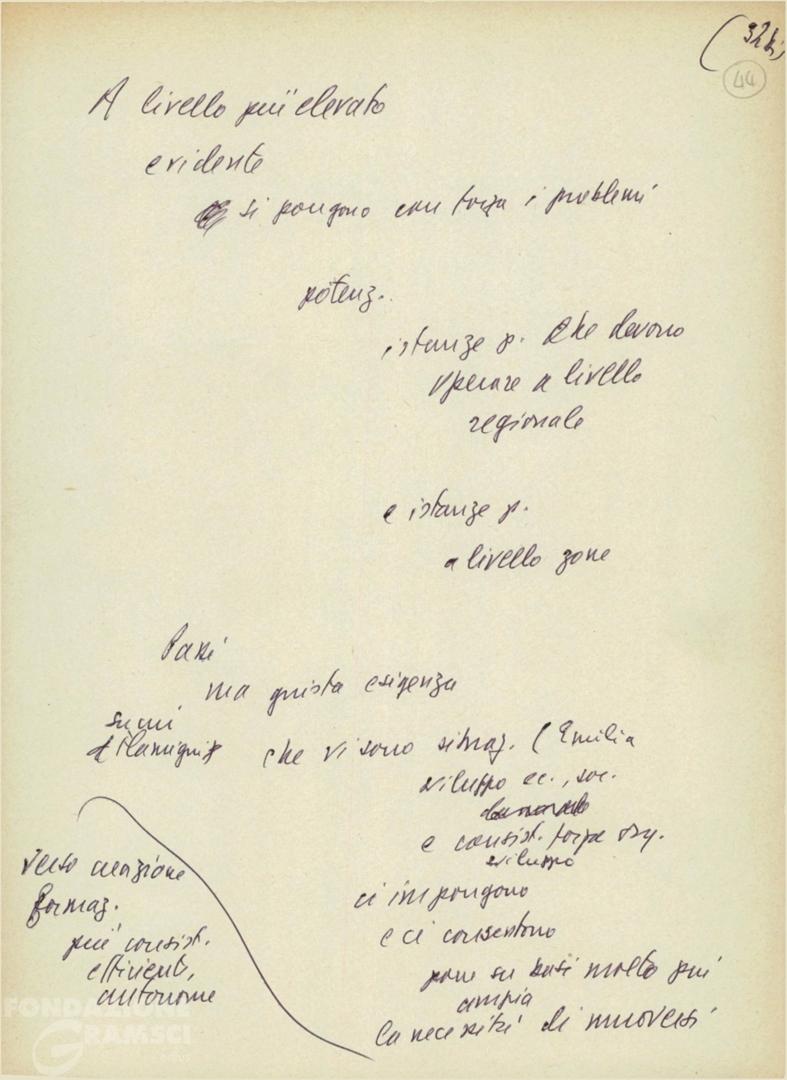 (32bis
44
A livello più elevato
evidente
si pongono con forza i problemi
potenz.
istanze p. che devono
operare a livello
regionale
e istanze p.
a livello zone
ma giusta esigenza
su cui
che vi sono situaz. (Emilia
sviluppo ec., soc.
e consist. forza org.
sviluppo
ci impongono
e ci consentono
porre su basi molto più
ampia
la necessità di muoversi
verso creazione
formaz.
più consist.
efficienti,
autonome
FONDAZIONE
GRAMSCI